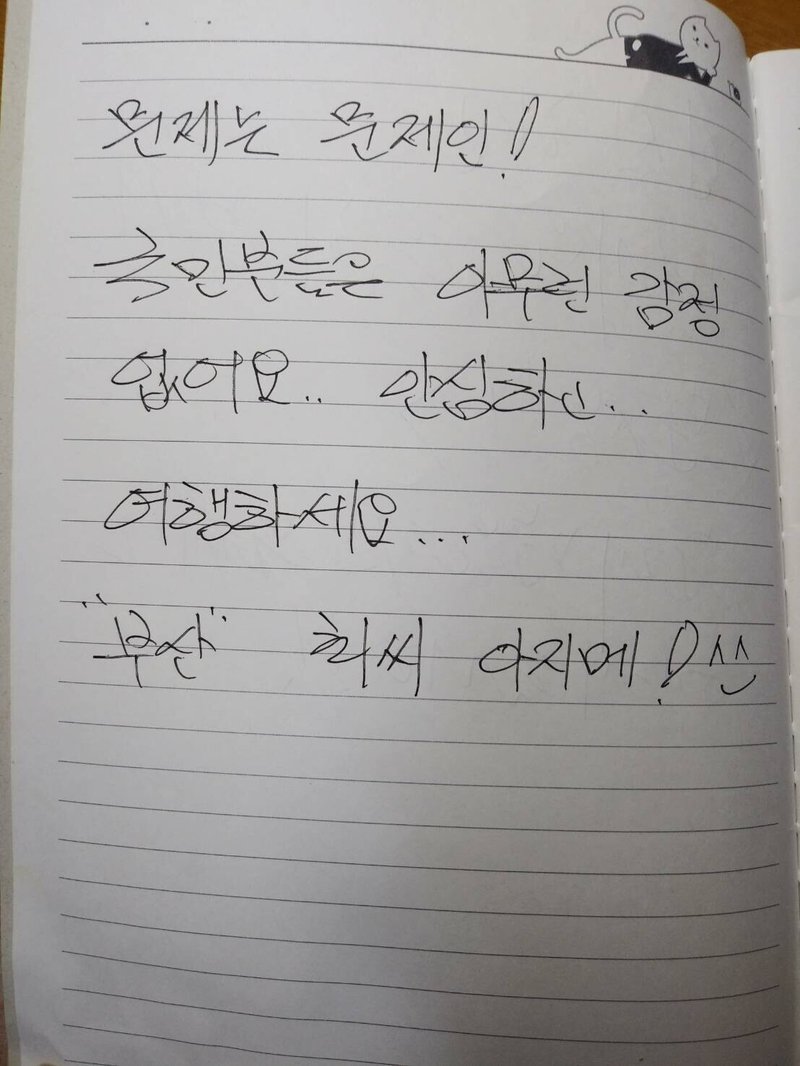 문제는 문제인!
국민분들은 아무런 감정
없어요.. 안심하고...
여행하세요...
"부산" 최씨 아지메! ^^